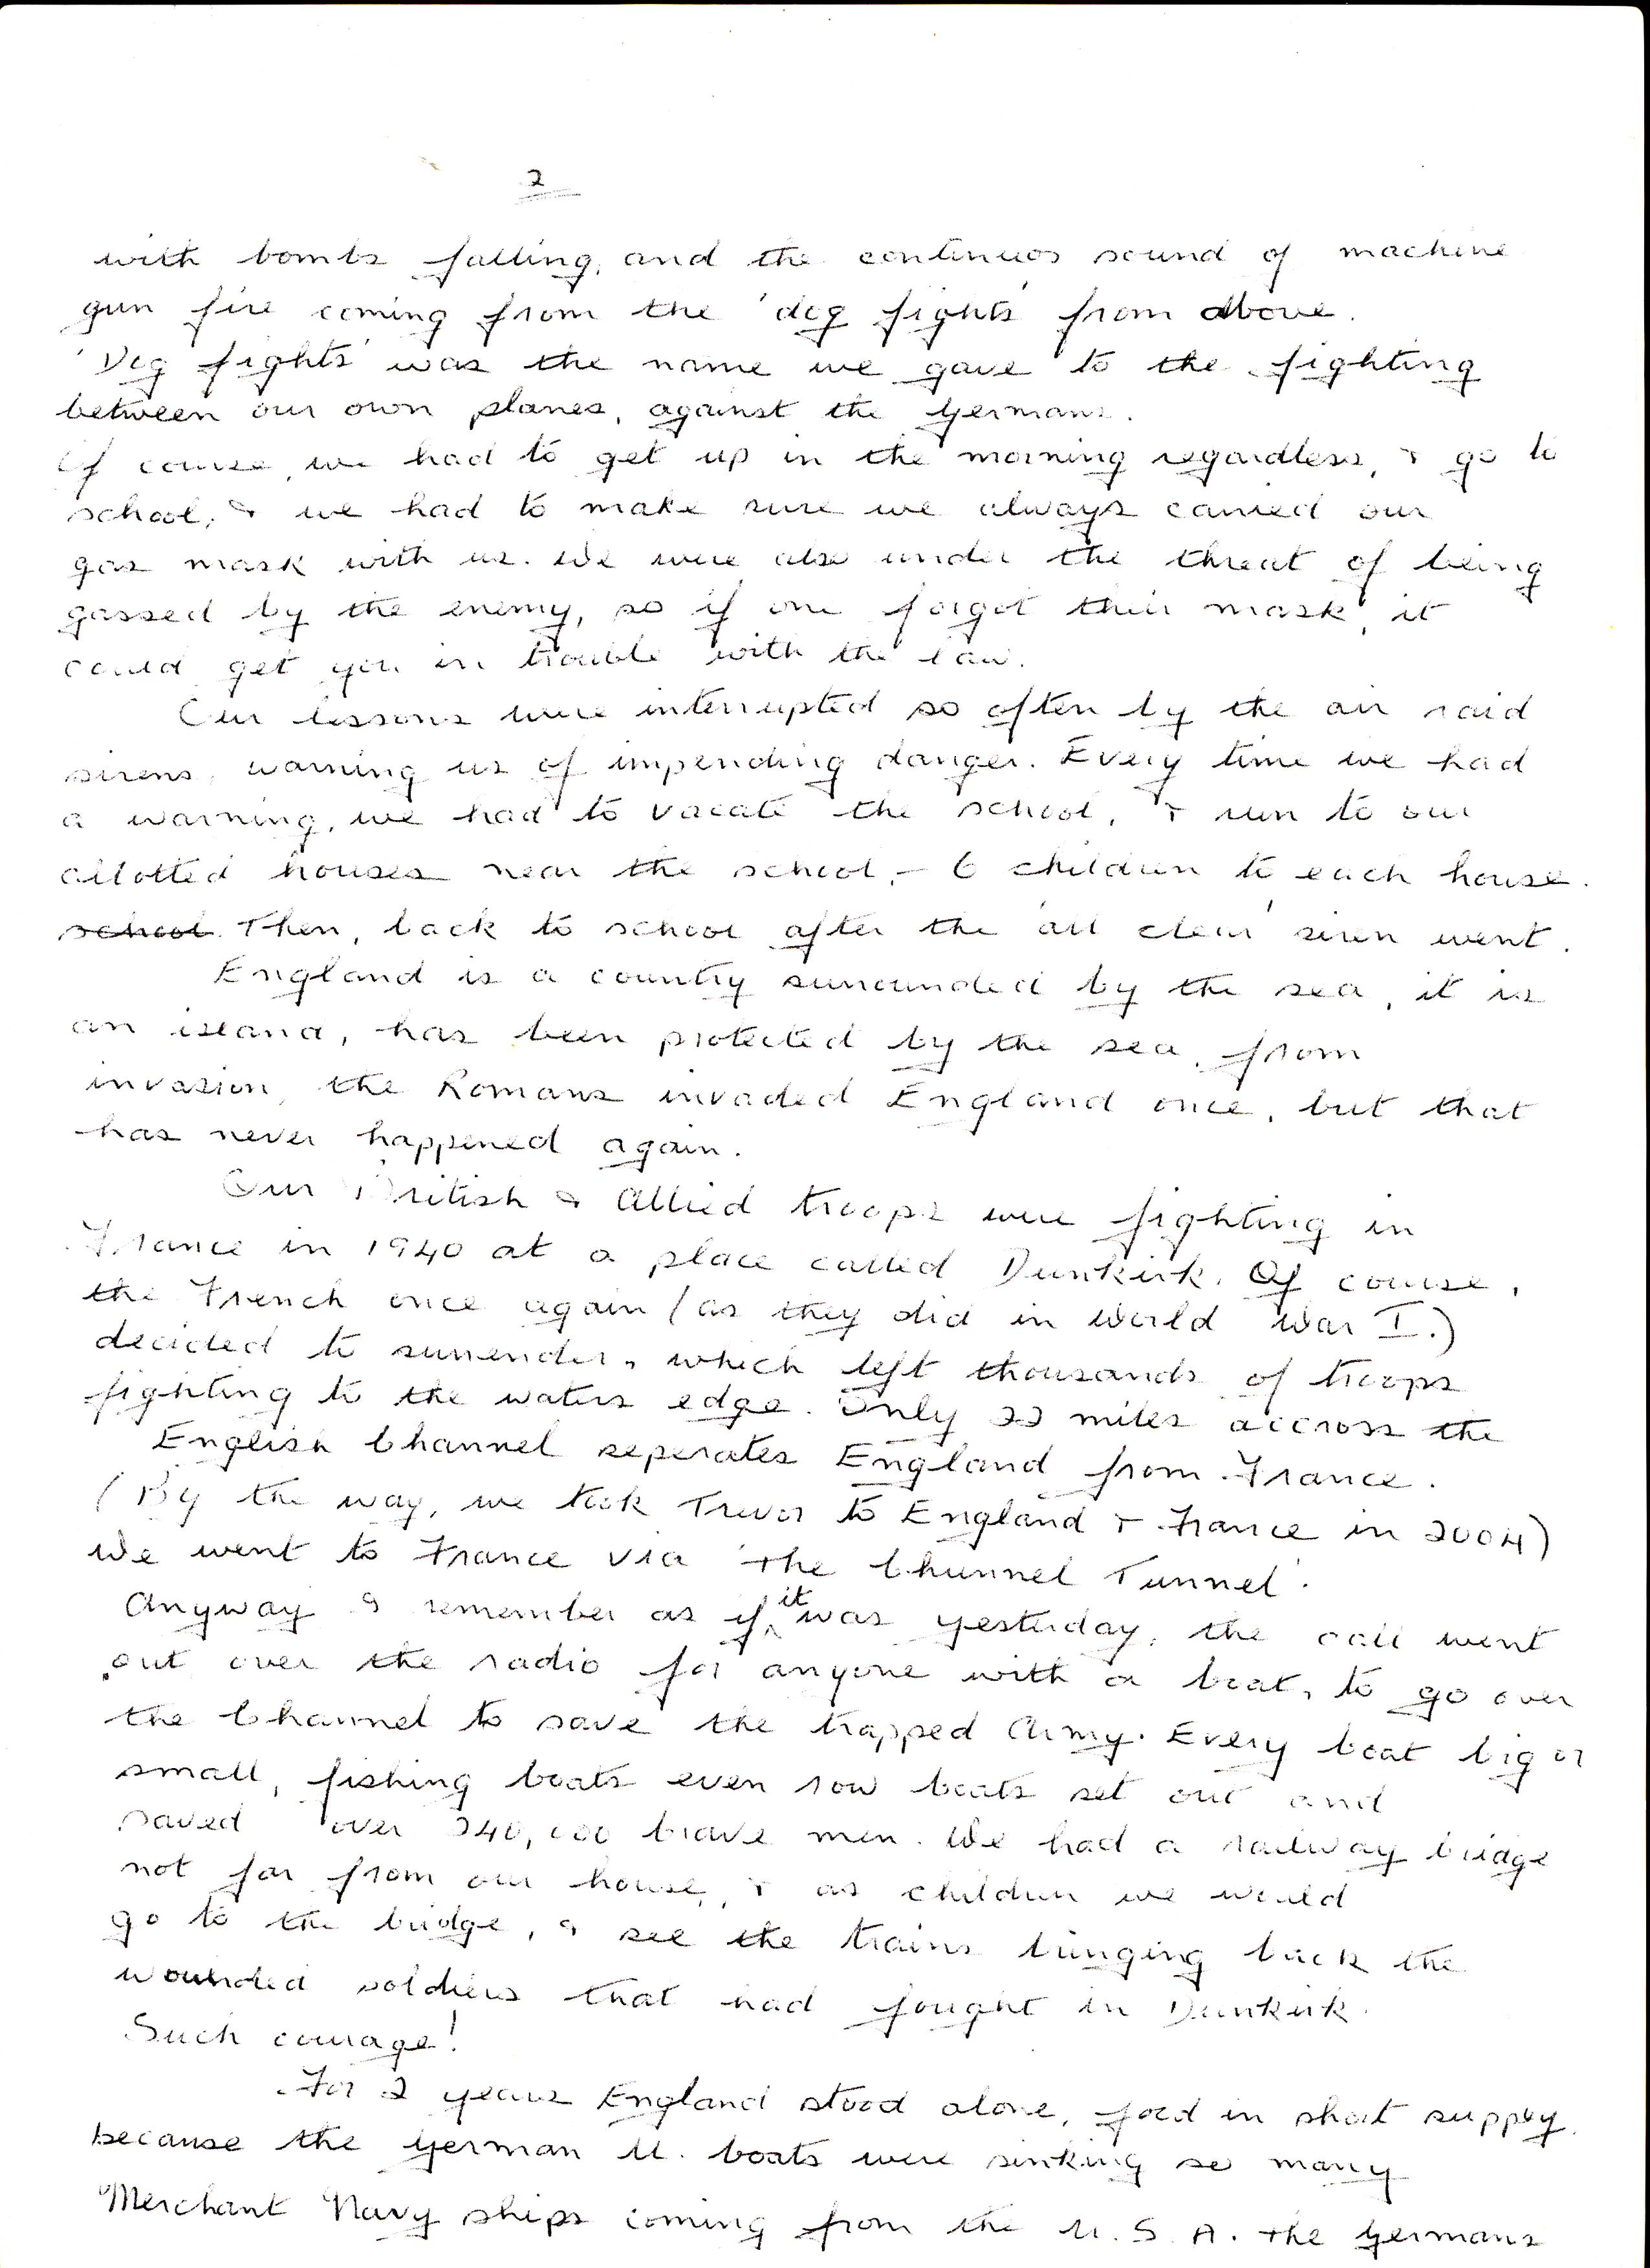 2
with bombs falling, and the continuos sound of machine
gun fire coming from the 'dog fights' from above.
'Dog fights' was the name we gave to the fighting
between our own planes, against the Germans.
Of course, we had to get up in the morning regardless, & go to
school, & we had to make sure we always carried our
gas mask with us. We were also under the threat of being
gassed by the enemy, so if one forgot their mask, it
could get you in trouble with the law.
Our lessons were interrupted so often by the air raid
sirens, warning us of impending danger. Every time we had
a warning, we had to vacate the school, & run to our
allotted houses near the school, - 6 children to each house.
school Then, back to school after the 'all clear' siren went.
England is a country surrounded by the sea, it is
an island, has been protected by the sea, from
invasion, the Romans invaded England once, but that
has never happened again.
Our British & Allied troops were fighting in
France in 1940 at a place called Dunkirk. Of course,
the French once again (as they did in World War I.)
decided to surrender, which left thousands of troops
fighting to the waters edge. Only 22 miles accross the
English Channel seperates England from France.
(By the way, we took Trevor to England & France in 2004)
We went to France via 'The Chunnel Tunnel'.
Anyway I remember as if it was yesterday, the call went
out over the radio for anyone with a boat, to go over
the Channel to save the trapped Army. Every boat big or
small, fishing boats even row boats set out and
saved over 340,000 brave men. We had a railway bridge
not far from our house, & as children we would
go to the bridge, & see the trains bringing back the
wounded soldiers that had fought in Dunkirk.
Such courage!
For 2 years England stood alone, food in short supply.
because the German U. boats were sinking so many
Merchant Navy ships coming from the U.S.A. The Germans